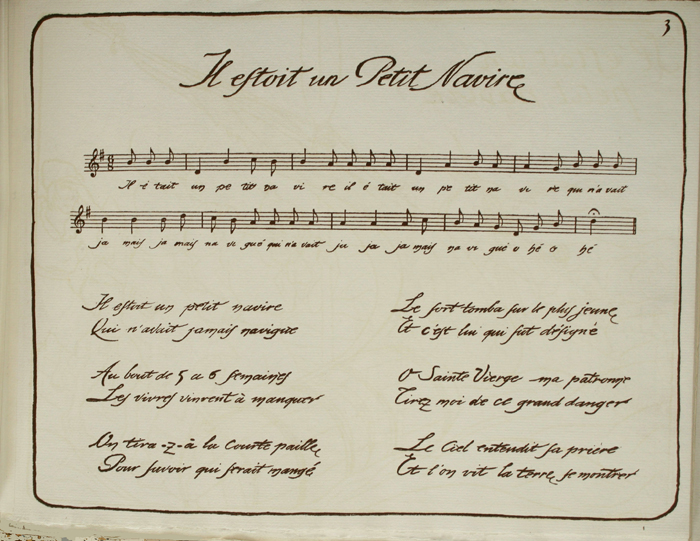 3
Il estoit un Petit Navire
Il é tait un pe tit na vi re il é tait un pe tit na vi re qui n'a vait
ja mais ja mais na vi gué qui n'a vait ja ja ja mais na vi gué o hé o hé
Il estoit un petit navire
Qui n'avait jamais navigue
Au bout de 5 a 6 semaines
Les vivres vinrent à manquer
On tira-z-à la Courte paille
Pour savoir qui serait mangé
Le sort tomba sur le plus jeune
Et c'est lui qui fut désigné
O Sainte Vierge ma patronne
Tirez moi de ce grand danger
Le Ciel entendit sa priere
Et l'on vit la terre se montrer